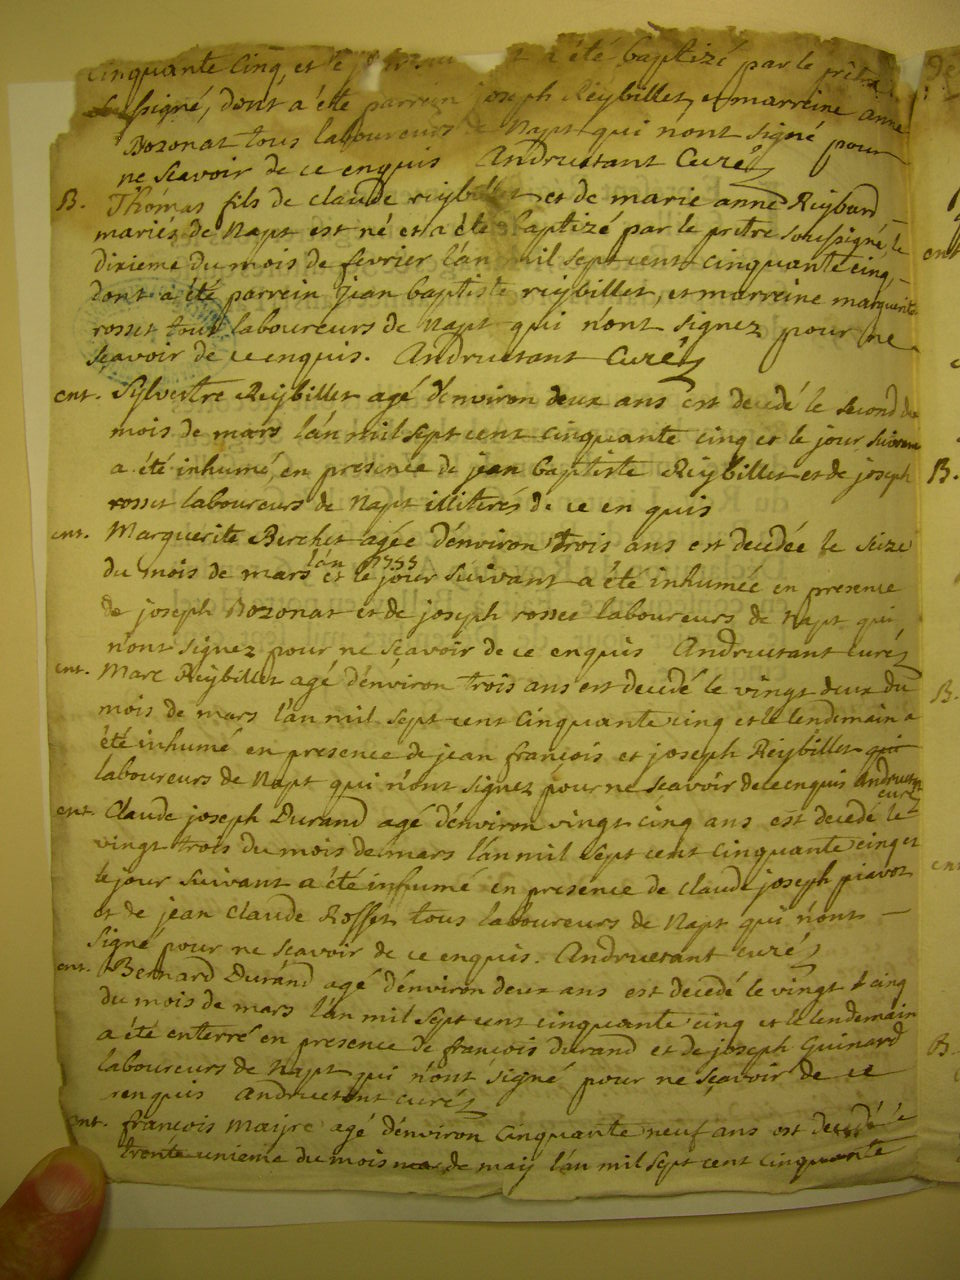 cinquante cinq, et le a été baptizé par le prêtre
soussigné, dont a été parrein joseph Réybillet, et marreine anne
Bozonat tous laboureurs de Napt qui n'ont signé pour
ne scavoir de ce enquis Andruetant Curé
B. Thomas fils de claude reijbillet et de marie anne Reijband
mariés de Napt est né et a été baptizé par le prêtre soussigné, le
dixieme du mois de fevrier l'an mil sept cent cinquante cinq
dont a été parrein jean baptiste reijbillet, et marreine marguerite
rosset tous laboureurs de Napt qui n'ont signez pour ne
scavoir de ce enquis. Andruetant Curé
ent. Sylvestre Reijbillet agé d'environ deux ans est decedé le second du
mois de mars l'an mil sept cent cinquante cinq et le jour suivant
a été inhumé, en presence de jean baptiste Reijbillet et de joseph
rosset laboureurs de Napt illiterés de ce en quis
ent. Marguerite Berchet agée d'environ trois ans est decedée le seize
l'an 1755
du mois de mars et le jour suivant a été inhumée en presence
de joseph Bozonat et de joseph rosset laboureurs de Napt qui
n'ont signez pour ne scavoir de ce enquis Andruetant curé
ent. Marc Reijbillet agé d'environ trois ans est decedé le vingt deux du
mois de mars l'an mil sept cent cinquante cinq et le lendemain a
été inhumé en presence de jean françois et joseph Reijbillet qui
laboureurs de Napt qui n'ont signez pour ne scavoir de ce enquis Andruetant
curé
ent Claude joseph Durand agé d'environ vingt cinq ans est decedé le
vingt trois du mois de mars l'an mil sept cent cinquante cinq et
le jour suivant a été inhumé en presence de claude joseph piavoz
et de jean claude Rosset tous laboureurs de Napt qui n'ont
signé pour ne scavoir de ce enquis. Andruetant curé
ent. Bernard Durand agé d'environ deux ans est decedé le vingt cinq
du mois de mars l'an mil sept cent cinquante cinq et le lendemain
a été enterré en presence de françois durand et de joseph Guinard
laboureurs de Napt qui n'ont signé pour ne sçavoir de ce
enquis Andruetant curé
ent. françois Maijre agé d'environ cinquante neuf ans est decedé
trente unieme du mois de maij l'an mil sept cent cinquante